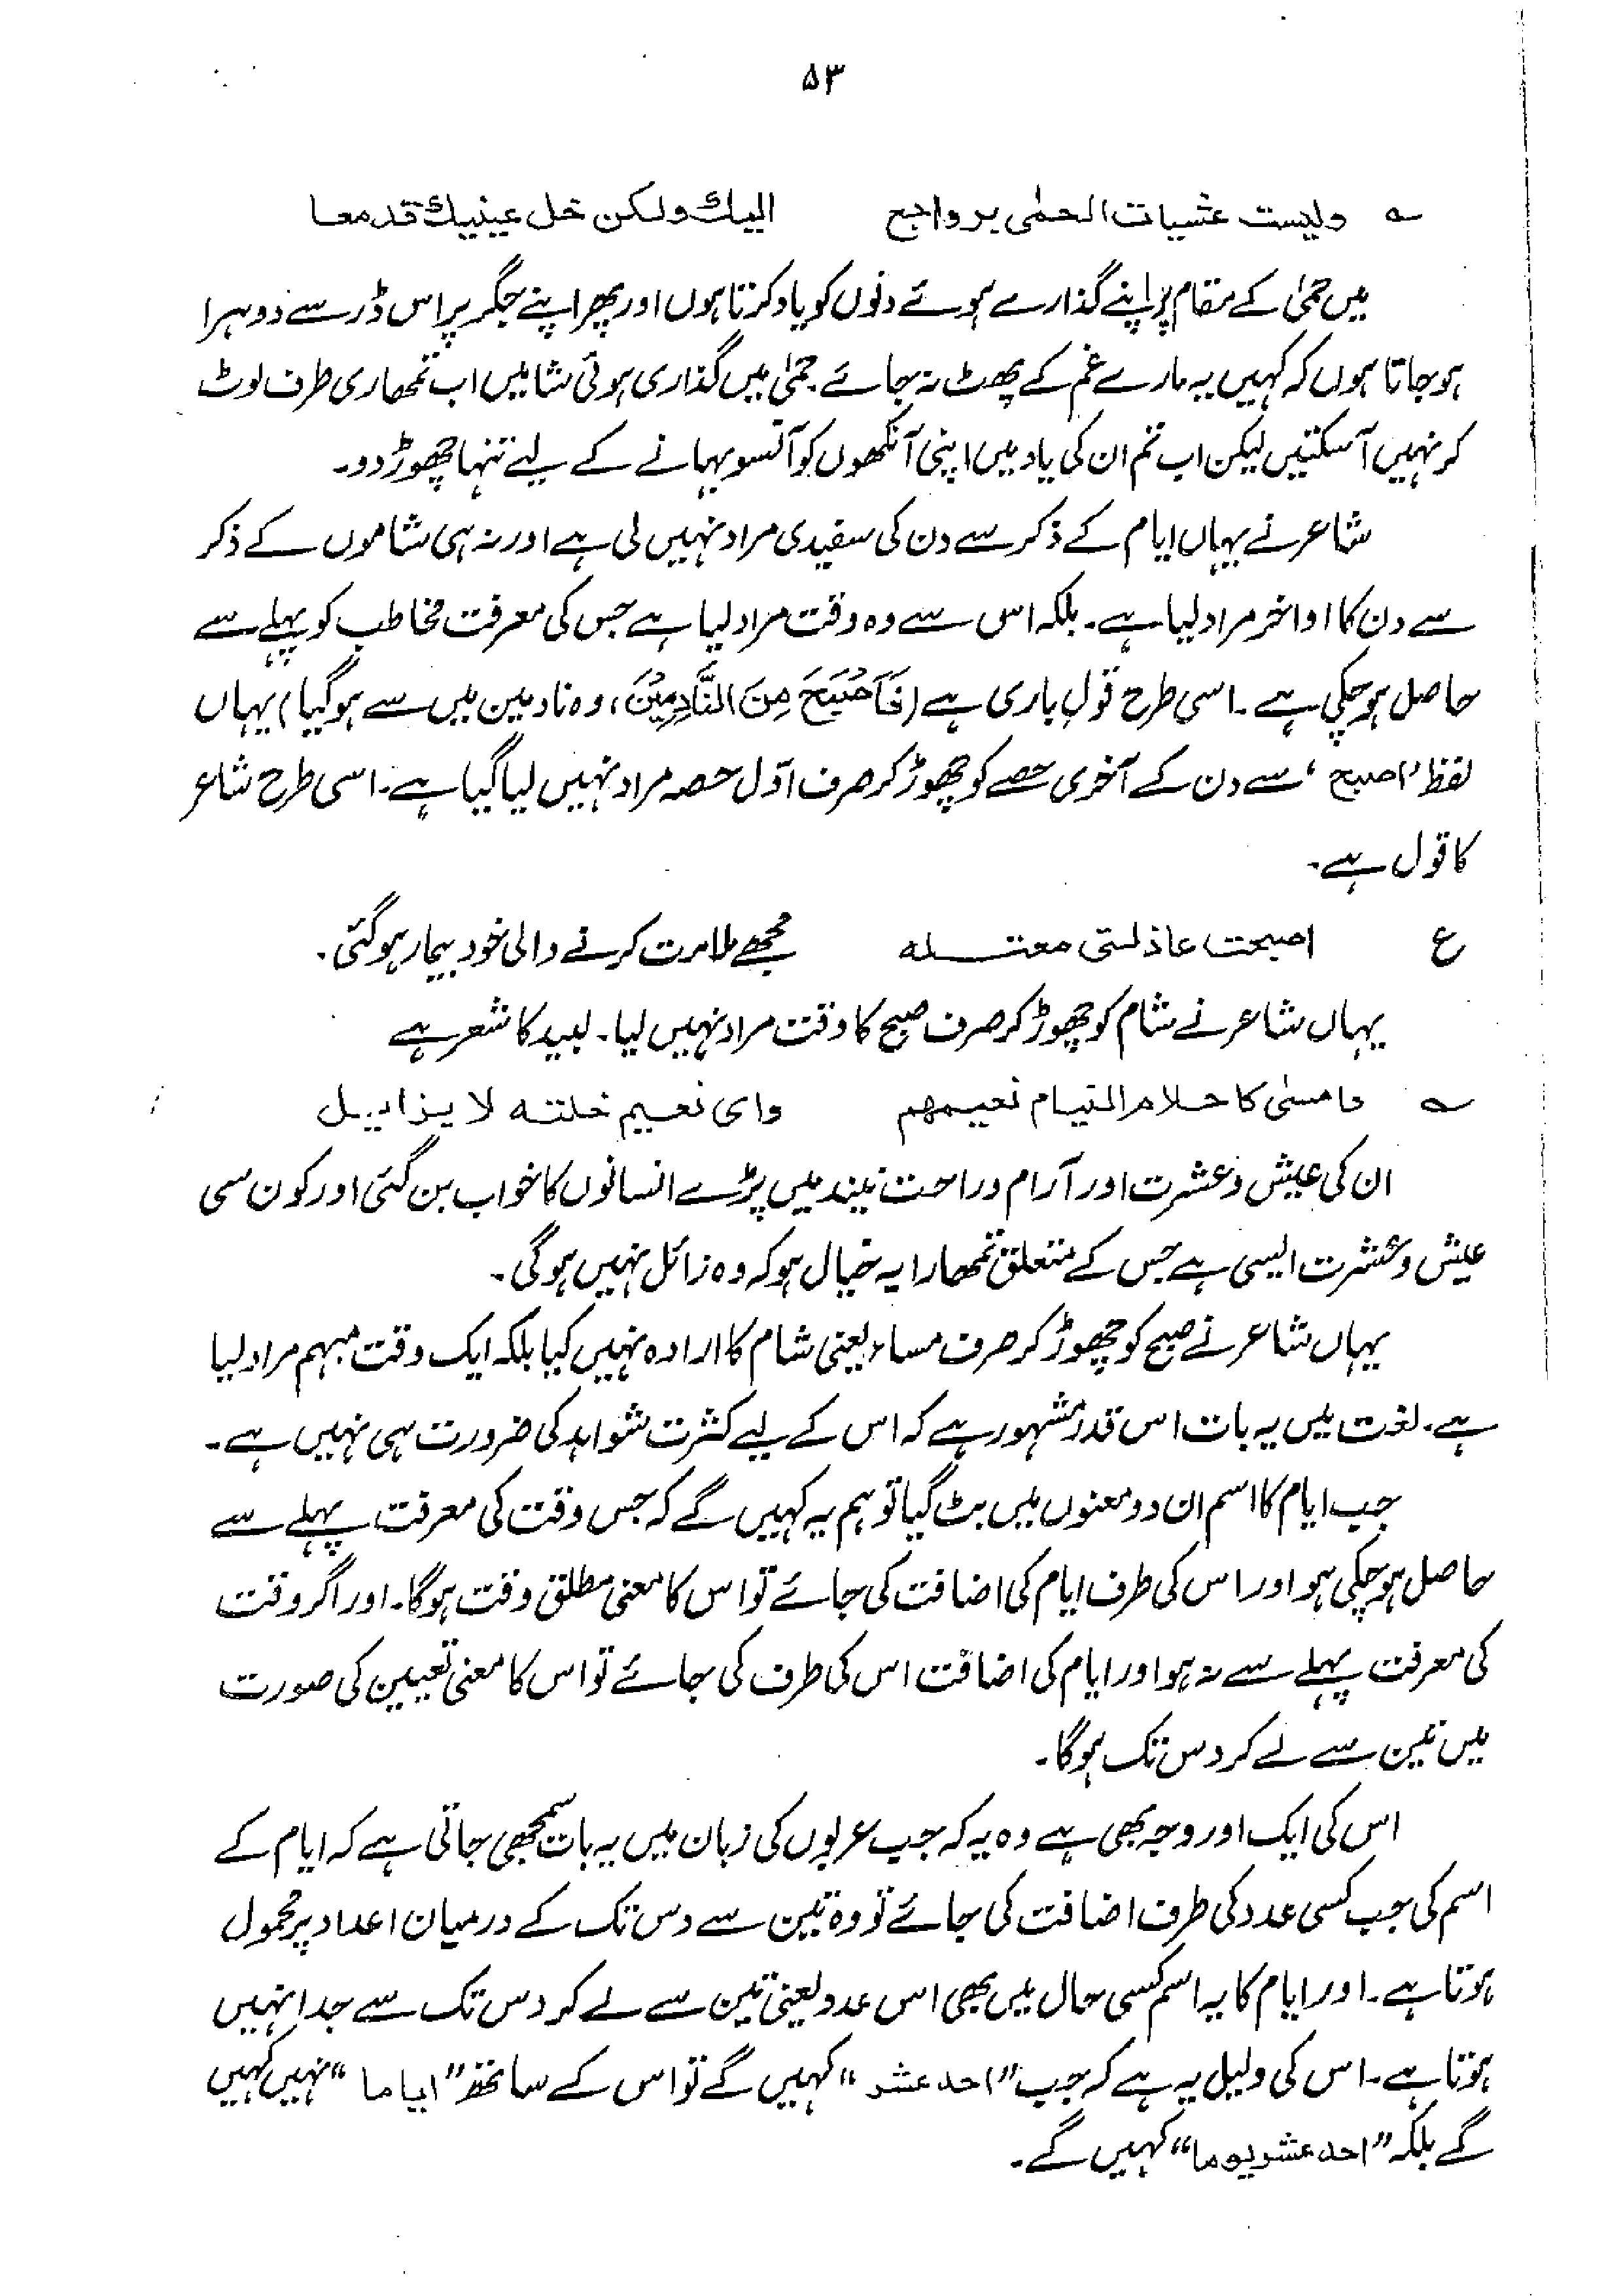 ۵۳
؎ ولیست عشیات الحمٰی برواجع الیك ولکن خل عینیك تدمعا
میں حمٰی کے مقام پر اپنے گذارے ہوئے دنوں کو یاد کرتا ہوں اور پھر اپنے جگر پر اس ڈر سے دوہرا
ہو جاتا ہوں کہ کہیں یہ مارے غم کے پھٹ نہ جائے۔ حمٰی میں گذاری ہوئی شامیں اب تمھاری طرف لوٹ
کر نہیں آسکتیں لیکن اب تم ان کی یاد میں اپنی آنکھوں کو آنسو بہانے کے لیے تنہا چھوڑ دو۔
شاعر نے یہاں ایام کے ذکر سے دن کی سفیدی مراد نہیں لی ہے اور نہ ہی شاموں کے ذکر
سے دن کا اواخر مراد لیا ہے۔ بلکہ اس سے وہ وقت مراد لیا ہے جس کی معرفت مخاطب کو پہلے سے
حاصل ہو چکی ہے۔ اسی طرح قولِ باری ہے (فَاَصْبَحَ مِنَ النَّادِمِیْنَ، وہ نادمین میں سے ہو گیا) یہاں
لفظ 'اصبح' سے دن کے آخری حصے کو چھوڑ کر صرف اوّل حصہ مراد نہیں لیا گیا ہے۔ اسی طرح شاعر
کا قول ہے۔
ع اصبحت عاذلتی معتـلہ مجھے ملامت کرنے والی خود بیمار ہو گئی۔
یہاں شاعر نے شام کو چھوڑ کر صرف صبح کا وقت مراد نہیں لیا۔ لبید کا شعر ہے
؎ وامسٰی کاحلام النیام نعیمھم وای نعیم خلتہ لا یزایل
ان کی عیش و عشرت اور آرام و راحت نیند میں پڑے انسانوں کا خواب بن گئی اور کون سی
عیش و عشرت ایسی ہے جس کے متعلق تمھارا یہ خیال ہو کہ وہ زائل نہیں ہوگی۔
یہاں شاعر نے صبح کو چھوڑ کر صرف مساء یعنی شام کا ارادہ نہیں کیا بلکہ ایک وقت مبہم مراد لیا
ہے۔ لغت میں یہ بات اس قدر مشہور ہے کہ اس کے لیے کثرت شواہد کی ضرورت ہی نہیں ہے۔
جب ایام کا اسم ان دو معنوں میں بٹ گیا تو ہم یہ کہیں گے کہ جس وقت کی معرفت پہلے سے
حاصل ہو چکی ہو اور اس کی طرف ایام کی اضافت کی جائے تو اس کا معنی مطلق وقت ہوگا۔ اور اگر وقت
کی معرفت پہلے سے نہ ہو اور ایام کی اضافت اس کی طرف کی جائے تو اس کا معنی تعیین کی صورت
میں تین سے لے کر دس تک ہوگا۔
اس کی ایک اور وجہ بھی ہے وہ یہ کہ جب عربوں کی زبان میں یہ بات سمجھی جاتی ہے کہ ایام کے
اسم کی جب کسی عدد کی طرف اضافت کی جائے تو وہ تین سے دس تک کے درمیان اعداد پر محمول
ہوتا ہے۔ اور ایام کا یہ اسم کسی حال میں بھی اس عدد یعنی تین سے لے کر دس تک سے جدا نہیں
ہوتا ہے۔ اس کی دلیل یہ ہے کہ جب "احد عشر" کہیں گے تو اس کے ساتھ "ایاما" نہیں کہیں
گے بلکہ "احد عشر یوما" کہیں گے۔